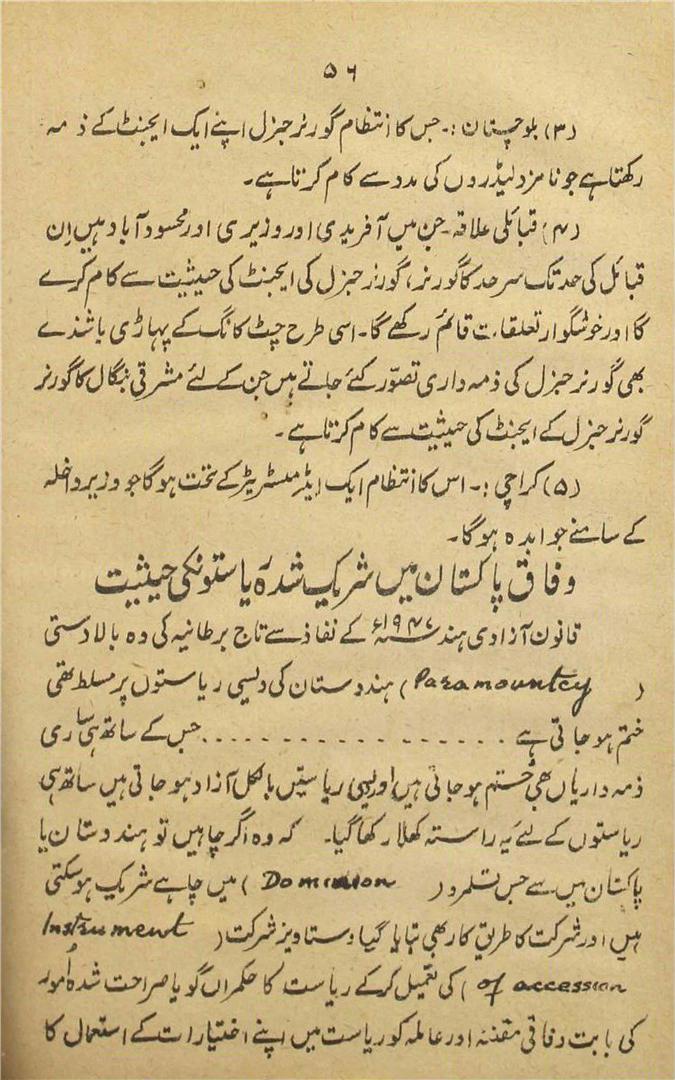 ۵۶
(۳) بلوچستان :۔ جس کا انتظام گورنر جنرل اپنے ایک ایجنٹ کے ذمہ
رکھتا ہے جو نامزد لیڈروں کی مدد سے کام کرتا ہے۔
(۴) قبائلی علاقہ۔ جن میں آفریدی اور وزیری اور محسود آباد ہیں ان
قبائل کی حد تک سرحد کا گورنر، گورنر جنرل کی ایجنٹ کی حیثیت سے کام کرے
گا اور خوشگوار تعلقات قائم رکھے گا۔ اسی طرح چٹ کانگ کے پہاڑی باشندے
بھی گورنر جنرل کی ذمہ داری تصوّر کئے جاتے ہیں جن کے لئے مشرقی بنگال کا گورنر
گورنر جنرل کے ایجنٹ کی حیثیت سے کام کرتا ہے۔
(۵) کراچی :۔ اس کا انتظام ایک ایڈمنسٹریٹر کے تحت ہو گا جو وزیر داخلہ
کے سامنے جوابدہ ہو گا۔
وفاق پاکستان میں شریک شدہ ریاستونکی حیثیت
قانون آزادی ہند ۱۹۴۷ء کے نفاذ سے تاج برطانیہ کی وہ بالادستی
(Paramountcy) ہندوستان کی دیسی ریاستوں پر مسلط تھی
ختم ہو جاتی ہے ................ جس کے ساتھ ہی ساری
ذمہ داریاں بھی ختم ہو جاتی ہیں اور دیسی ریاستیں بالکل آزاد ہو جاتی ہیں ساتھ ہی
ریاستوں کے لئے یہ راستہ کھلا رکھا گیا۔ کہ وہ اگر چاہیں تو ہندوستان یا
پاکستان میں سے جس قلمرو (Dominion) میں چاہے شریک ہو سکتی
ہیں اور شرکت کا طریق کار بھی بتایا گیا دستاویز شرکت (Instrument
of accession) کی تعمیل کر کے ریاست کا حکمراں گویا صراحت شدہ اُمور
کی بابت وفاقی مقننہ اور عاملہ کو ریاست میں اپنے اختیارات کے استعمال کا